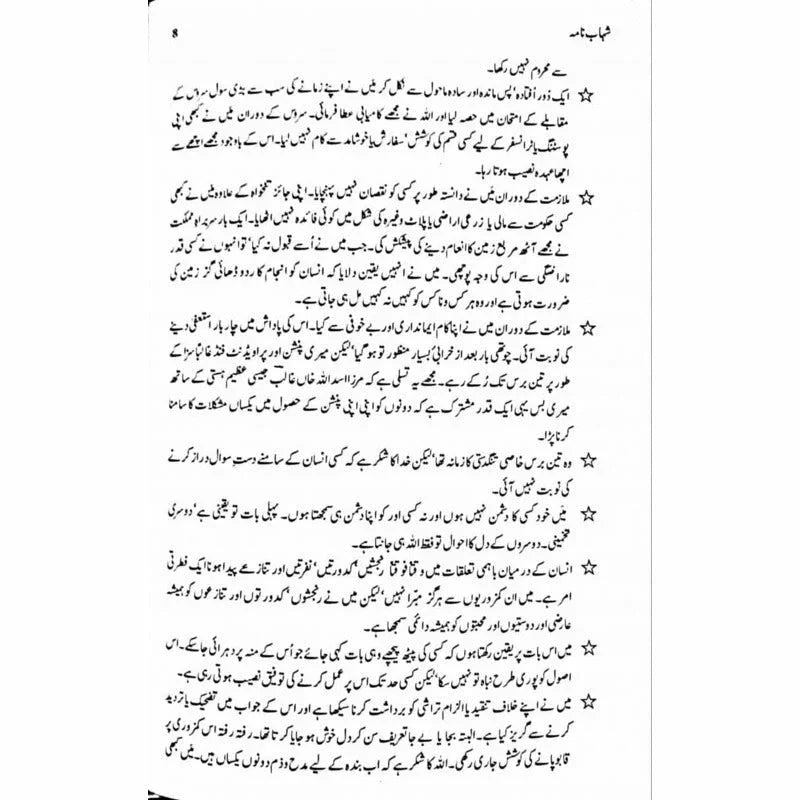 شہاب نامہ
8
سے محروم نہیں رکھا۔
☆ ایک دُور اُفتادہ' پس ماندہ اور سادہ ماحول سے نکل کر میں نے اپنے زمانے کی سب سے بڑی سول سروس کے
مقابلے کے امتحان میں حصہ لیا اور اللہ نے مجھے کامیابی عطا فرمائی۔ سروس کے دوران میں نے کبھی اپنی
پوسٹنگ یا ٹرانسفر کے لیے کسی قسم کی کوشش' سفارش یا خوشامد سے کام نہیں لیا۔ اس کے باوجود مجھے اچھے سے
اچھا عہدہ نصیب ہوتا رہا۔
☆ ملازمت کے دوران میں نے دانستہ طور پر کسی کو نقصان نہیں پہنچایا۔ اپنی جائز تنخواہ کے علاوہ میں نے کبھی
کسی حکومت سے مالی یا زرعی اراضی یا پلاٹ وغیرہ کی شکل میں کوئی فائدہ نہیں اٹھایا۔ ایک بار سربراہِ مملکت
نے مجھے آٹھ مربع زمین کا انعام دینے کی پیشکش کی۔ جب میں نے اُسے قبول نہ کیا' تو انہوں نے کسی قدر
ناراضگی سے اس کی وجہ پوچھی۔ میں نے انہیں یقین دلایا کہ انسان کو انجام کار دو ڈھائی گز زمین کی
ضرورت ہوتی ہے اور وہ ہر کس و ناکس کو کہیں نہ کہیں مل ہی جاتی ہے۔
☆ ملازمت کے دوران میں نے اپنا کام ایمانداری اور بے خوفی سے کیا۔ اس کی پاداش میں چار بار استعفیٰ دینے
کی نوبت آئی۔ چوتھی بار بعد از خرابیٔ بسیار منظور تو ہو گیا' لیکن میری پنشن اور پراویڈنٹ فنڈ غالباً سزا کے
طور پر تین برس تک رُکے رہے۔ مجھے یہ تسلی ہے کہ مرزا اسد اللہ خاں غالبؔ جیسی عظیم ہستی کے ساتھ
میری بس یہی ایک قدر مشترک ہے کہ دونوں کو اپنی اپنی پنشن کے حصول میں یکساں مشکلات کا سامنا
کرنا پڑا۔
☆ وہ تین برس خاصی تنگدستی کا زمانہ تھا' لیکن خدا کا شکر ہے کہ کسی انسان کے سامنے دستِ سوال دراز کرنے
کی نوبت نہیں آئی۔
☆ میں خود کسی کا دشمن نہیں ہوں اور نہ کسی اور کو اپنا دشمن ہی سمجھتا ہوں۔ پہلی بات تو یقینی ہے' دوسری
تخمینی۔ دوسروں کے دل کا احوال تو فقط اللہ ہی جانتا ہے۔
☆ انسان کے درمیان باہمی تعلقات میں وقتاً فوقتاً رنجشیں' کدورتیں' نفرتیں اور تنازعے پیدا ہونا ایک فطرتی
امر ہے۔ میں ان کمزوریوں سے ہرگز مبرّا نہیں' لیکن میں نے رنجشوں' کدورتوں اور تنازعوں کو ہمیشہ
عارضی اور دوستیوں اور محبتوں کو ہمیشہ دائمی سمجھا ہے۔
☆ میں اس بات پر یقین رکھتا ہوں کہ کسی کی پیٹھ پیچھے وہی بات کہی جائے جو اُس کے منہ پر دہرائی جا سکے۔ اس
اصول کو پوری طرح نباہ تو نہیں سکا' لیکن کسی حد تک اس پر عمل کرنے کی توفیق نصیب ہوتی رہی ہے۔
☆ میں نے اپنے خلاف تنقید یا الزام تراشی کو برداشت کرنا سیکھا ہے اور اس کے جواب میں تضحیک یا تردید
کرنے سے گریز کیا ہے۔ البتہ بجا یا بے جا تعریف سن کر دل خوش ہو جایا کرتا تھا۔ رفتہ رفتہ اس کمزوری پر
قابو پانے کی کوشش جاری رکھی۔ اللہ کا شکر ہے کہ اب بندہ کے لیے مدح و ذم دونوں یکساں ہیں۔ میں کبھی